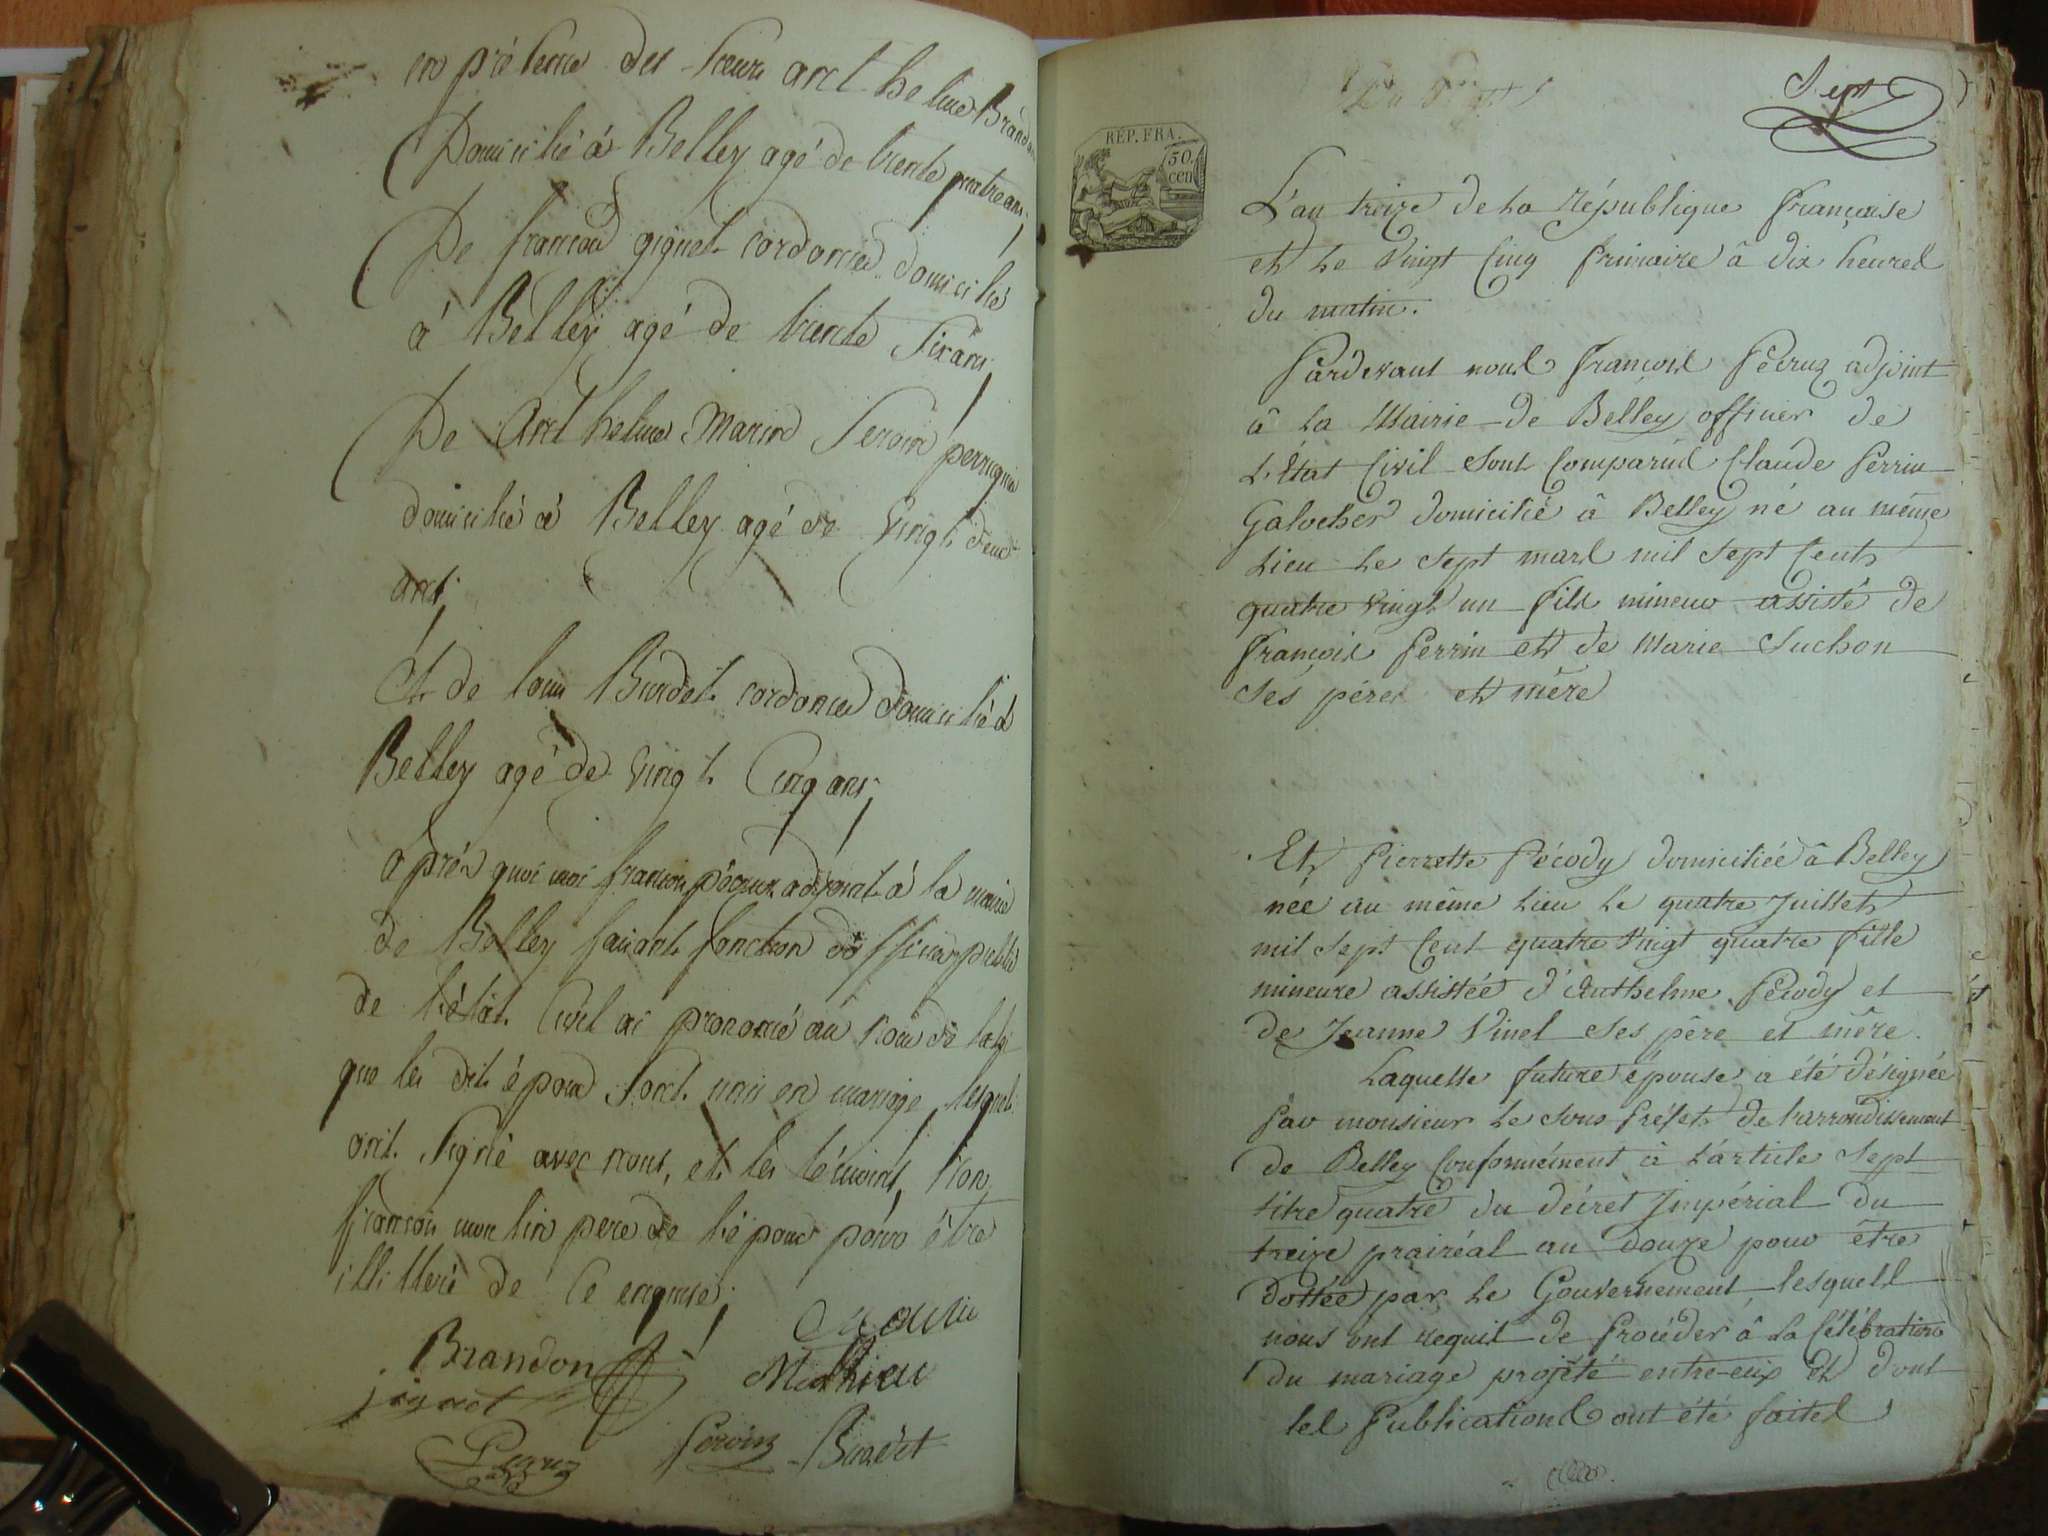 en présence des sieurs anthelme Brandon
Domicilié à Belley agé de trente quatre ans,
De françois gignet cordonnier domicilié
à Belley agé de trente six ans,
De Anthelme Marin Peroin perruquier
domicilié à Belley agé de vingt deux
ans,
Et de louis Burdet cordonier domicilié à
Belley agé de vingt Cinq ans,
après quoi moi françois pécruz adjoint à la mairie
de Belley faisant fonction d'officier public
de l'état Civil ai prononcé au nom de la loi
que les dits époux sont unis en mariage, lesquels
ont signé avec nous, et les témoins, non
françois pere de l'époux pour être
illitteré de ce enquis;
Brandon Mathieu
gignet
Pecruz Peroin Burdet
Sept
RÉP. FRA.
50
cen
L'an treize de la République française
et le vingt Cinq frimaire à dix heures
du matin.
Pardevant nous françois Pécruz adjoint
à la Mairie de Belley officier de
L'État Civil sont Comparus Claude Perrin
Galocher domicilié à Belley né au même
Lieu le sept mars mil sept Cent
quatre vingt un fils mineur assisté de
françois Perrin et de Marie Suchon
ses péres et mère
Et Pierrette Pécody domiciliée à Belley
née au même Lieu le quatre Juillet
mil sept Cent quatre vingt quatre fille
mineure assistée d'Anthelme Pécody et
de Jeanne Vinel ses père et mère.
Laquelle future épouse a été désignée
Par monsieur le sous Préfet de l'arrondissement
de Belley Conformément à L'article sept
titre quatre du décret Impérial du
treize prairéal an douze pour être
dottée par le Gouvernement, lesquels
nous ont requis de Procéder à la Célébration
du mariage projété entre-eux et dont
les Publications ont été faites